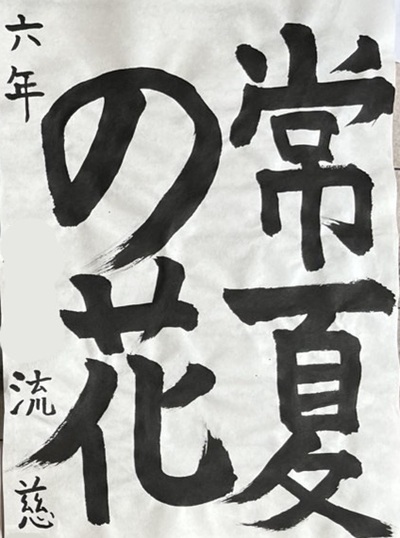 常夏
の花
六年
流慈